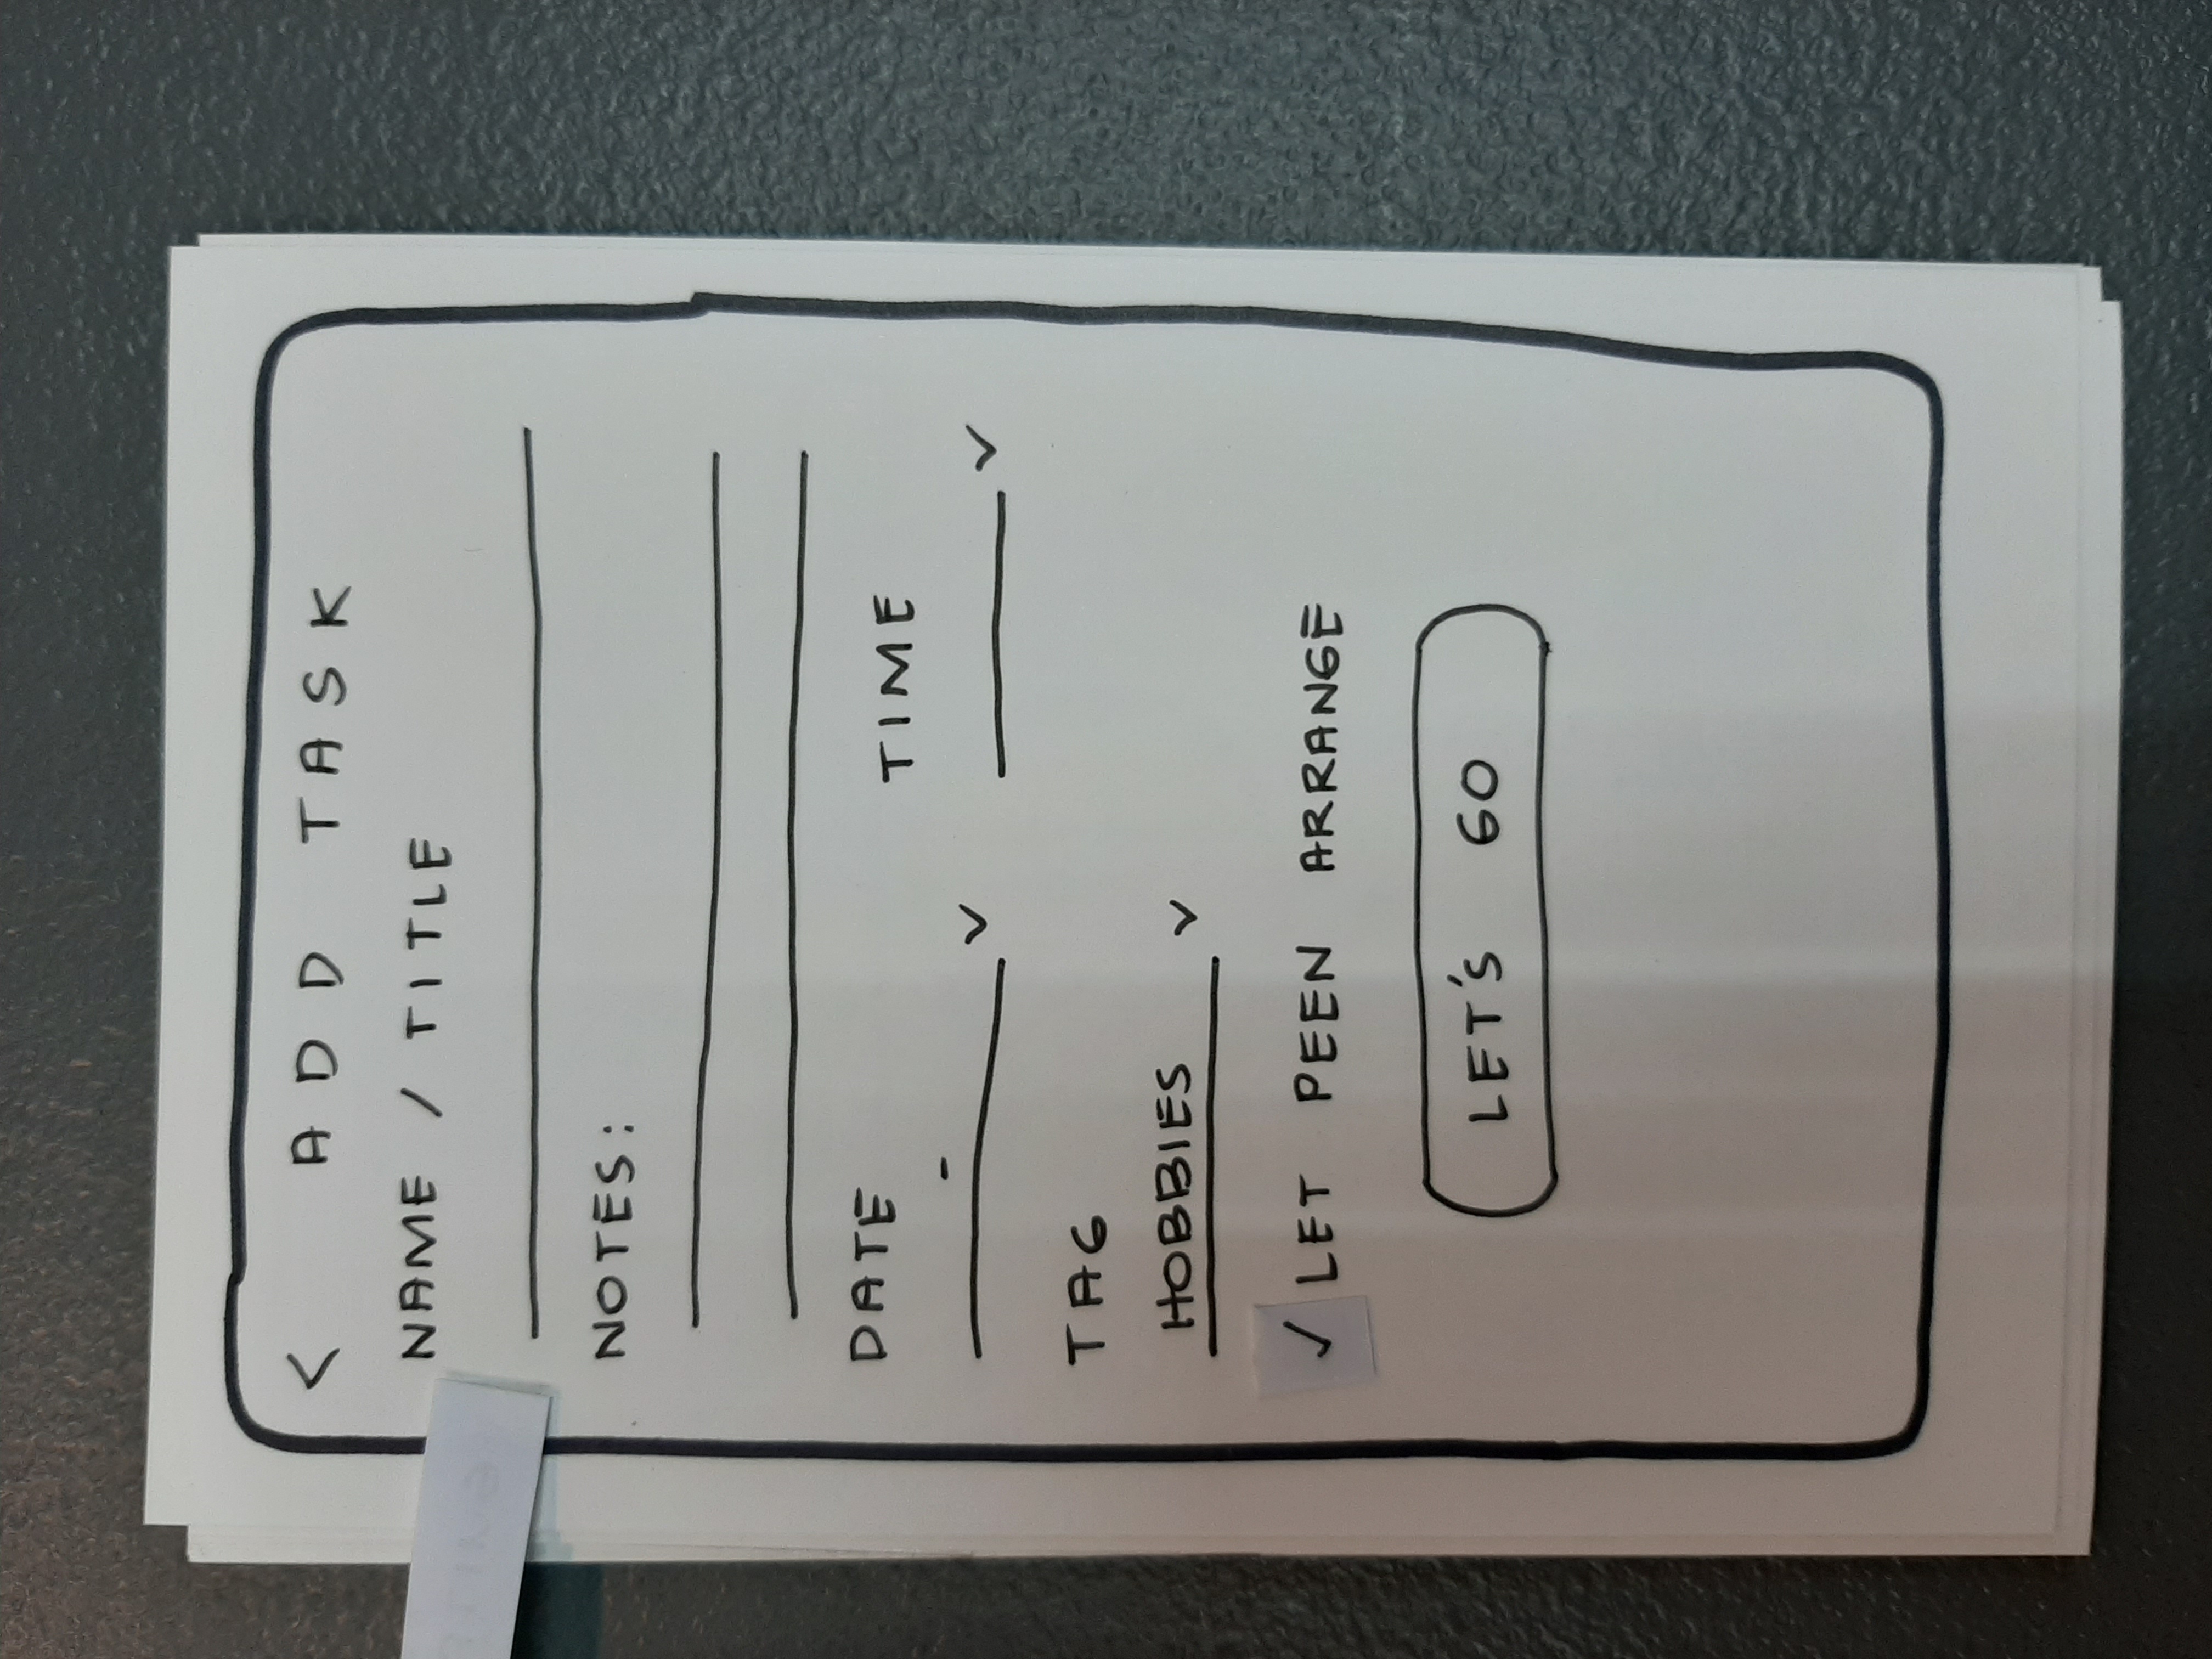 < ADD TASK
NAME / TITLE
NOTES:
DATE TIME
-
TAG
HOBBIES
✓ LET PEEN ARRANGE
LET'S GO